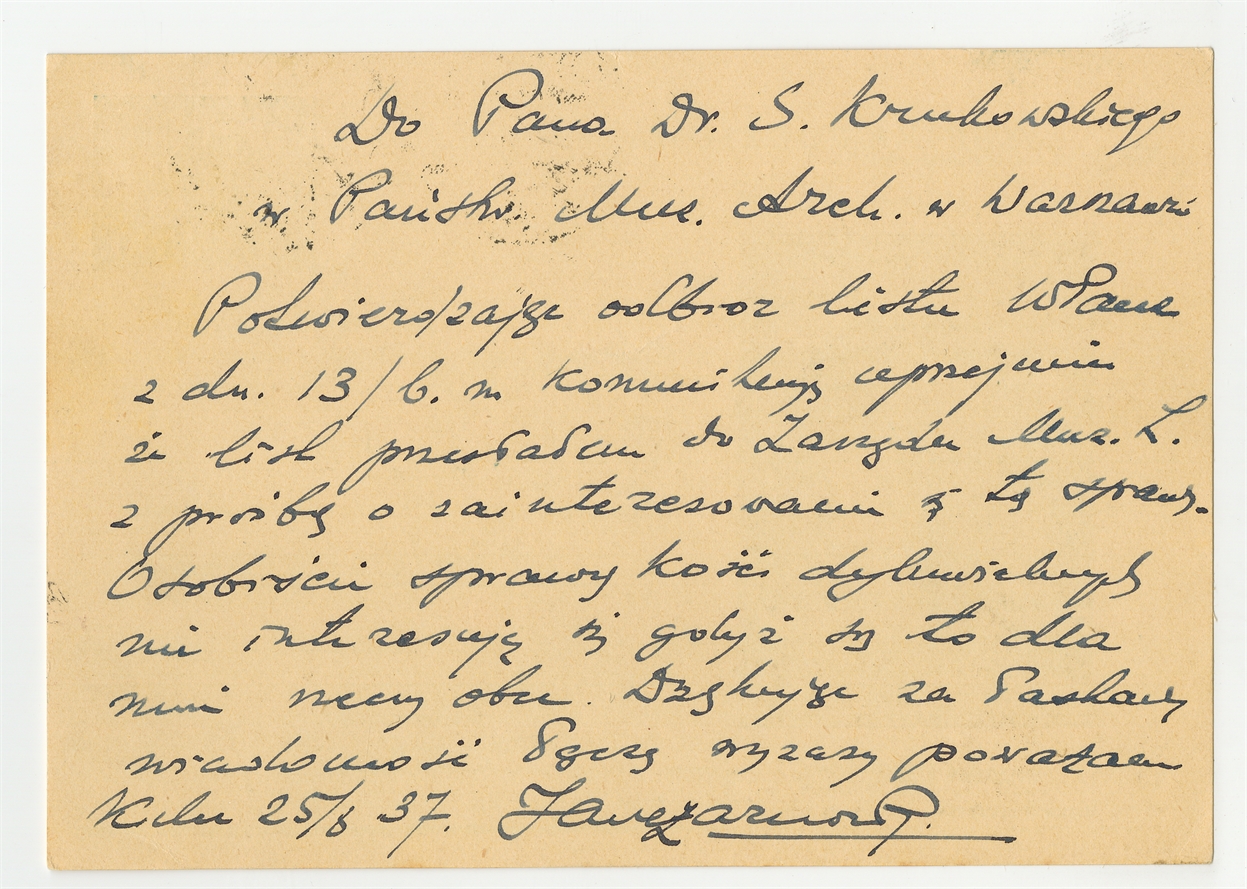 Do Pana Dr. S. Krukowskiego
w Państw. Muz. Arch. w Warszawie
Potwierdzając odbiór listu WPana
z dn. 13/6. m komunikuję uprzejmie
że list przesłałem do Zarządu Muz. Ś.
z prośbą o zainteresowanie się tą sprawą.
Osobiście sprawą kości dyluwialnych
nie interesuję się gdyż są to dla
mnie rzeczy obce. Dziękując za łaskawą
wiadomość łączę wyrazy poważania
Kielce 25/6 37.